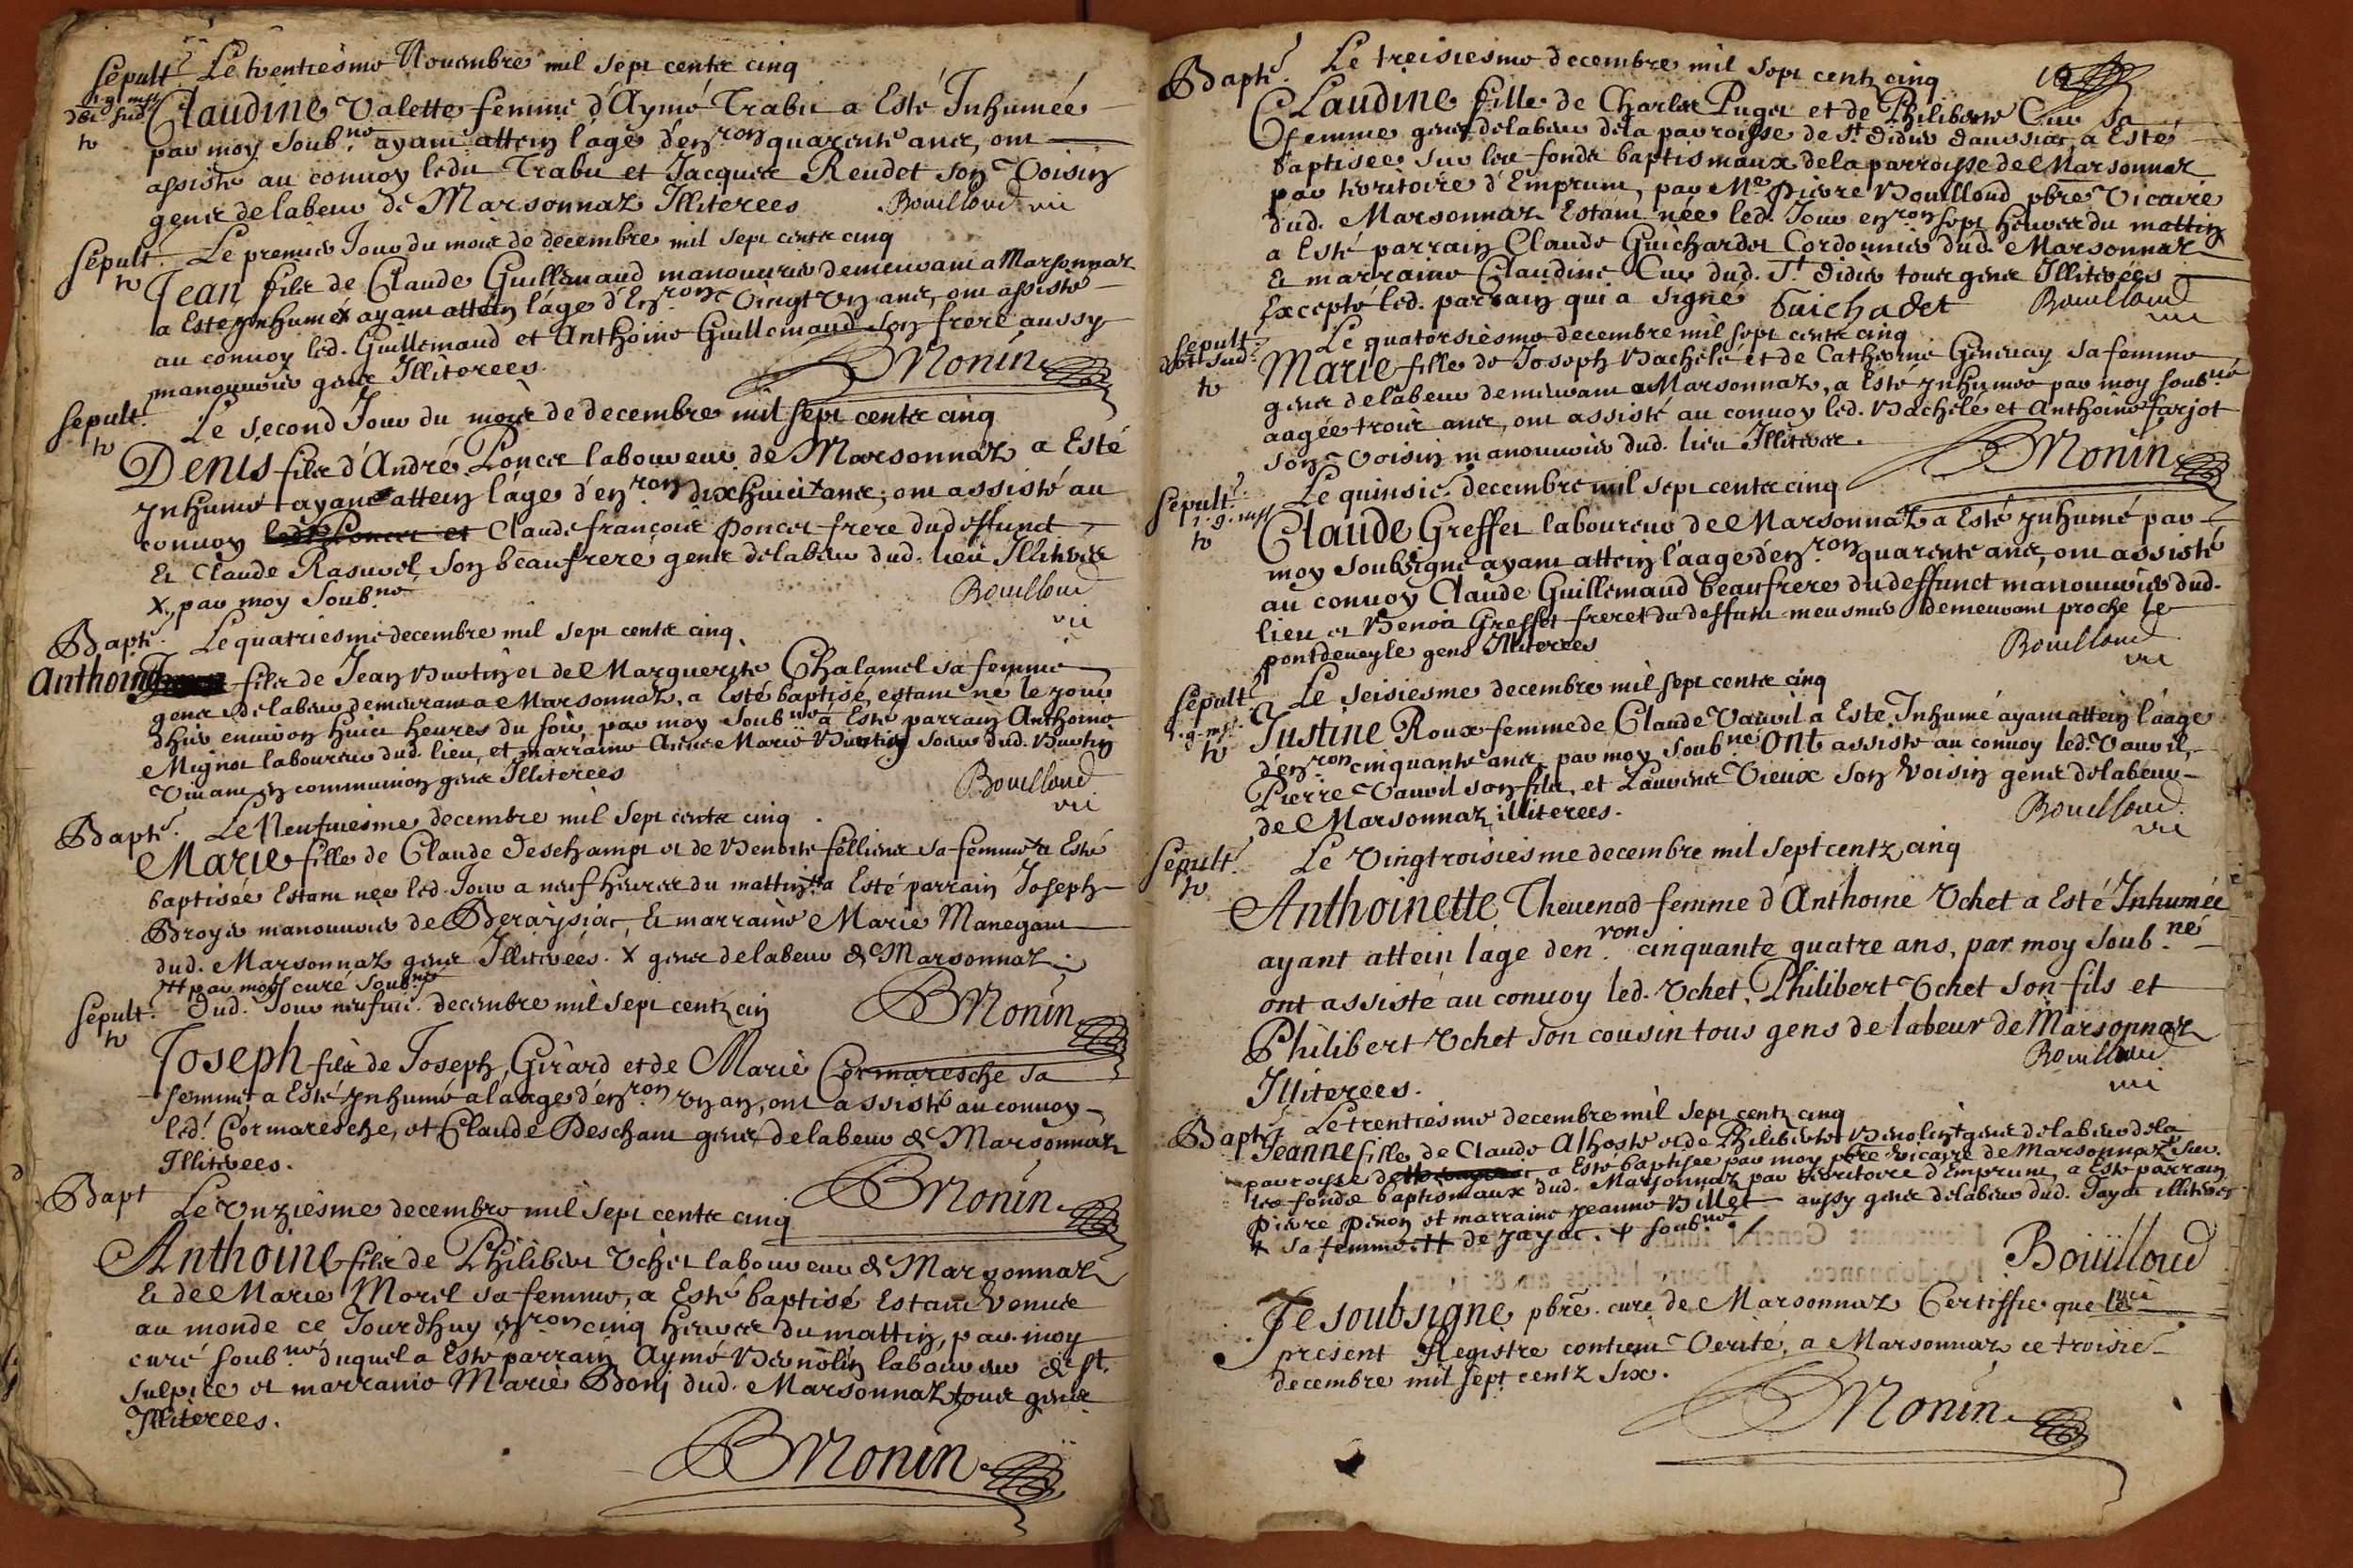 Sepult. Le trentiesme Novembre mil sept centz cinq
Claudine Valette femme d'Aymé Trabu a Esté Inhumée
par moy soub.né ayant attein lage d'en.ron quarente ans, ont
assisté au convoy ledit Trabu et Jacques Reudet son voisin
gens de labeur de Marsonnaz Illiterees Bouilloud vic
Sepult. Le premier Jour du mois de decembre mil sept centz cinq
Jean fils de Claude Guillemaud manouvrier demeurant a Marsonnaz
a Esté ynhumé x ayant attein láge d'En.ron vingt un ans, ont assisté
au convoy led. Guillemaud et Anthoine Guillemaud son frere aussy
manouvrier gens Illiterees.
BMonin
Sepult. Le second Jour du mois de decembre mil sept centz cinq
Denis fils d'André Poncet laboureur de Marsonnaz a Esté
ynhumé + ayant attein láge d'en.ron dix huict ans, ont assisté au
convoy Claude françois Poncet frere dud deffunct
Et Claude Rasurel son beaufrere gens de labeur dud. lieu Illiterees
x. par moy soub.né Bouilloud
vic
Bapt. Le quatriesme decembre mil sept centz cinq.
Anthoine fils de Jean Burtin et de Marguerite Chalamel sa femme
gens de labeur demeurant a Marsonnaz, a Esté baptisé, estant né le jour
dhier environ huict heures du soir, par moy soub.né a Esté parrain Anthoine
Mignot laboureur dud. lieu, et marraine Marie Burtin soeur dud. Burtin
Vivant en communion gens Illiterees Bouilloud
vic
Bapt. Le Neufviesme decembre mil sept centz cinq.
Marie fille de Claude Deschamps et de Benoite sa femme x a Esté
baptisée Estant née led. Jour a neuf heures du mattin ++ a Esté parrain Joseph
Broyer manouvrier de Et marraine Marie Manegant
dud. Marsonnaz gens Illiterées. x gens de labeur de Marsonnaz
++ par moy curé soub.né
BMonin
Sepult. Dud. Jour neufvie. decembre mil sept centz cinq
Joseph fils de Joseph Girard et de Marie Cormaresche sa
femme a Esté ynhumé a láage d'en.ron un an, ont assisté au convoy
led. Cormaresche, et Claude Descham gens de labeur de Marsonnaz
Illiterees.
BMonin
Bapt Le Unziesme decembre mil sept centz cinq
Anthoine fils de Philibert Uchet laboureur de Marsonnaz
Et de Marie Morel sa femme, a Esté baptisé Estant venu
au monde ce Jourdhuy en.ron cinq heures du mattin, par moy
curé soub.né duquel a Esté parrain Aymé Benolin laboureur de St.
Sulpice et marraine Marie Bonj dud. Marsonnaz tous gens
Illiterees.
BMonin
Bapt. Le treisiesme decembre mil sept centz cinq
Claudine fille de Charles Puget et de Philiberte Cur sa
femme gens de labeur dela parroisse de St. Didier daussiat a Esté
baptisée sur les fonds baptismaux dela parroisse de Marsonnaz
par territoire d'Emprunt, par Me Pierre Bouilloud pbre Vicaire
dud. Marsonnaz Estant née led. Jour en.ron sept heures du mattin
a Esté parrain Claude Guichardet Cordonnier dud. Marsonnaz
Et marraine Claudine Cur dud. St. Didier tous gens Illiterées
Excepté led. parrain qui a signé Guichadet Bouilloud
vic
Sepult. Le quatorsiesme decembre mil sept centz cinq
Marie fille de Joseph Bachelé et de Catherine Genevay sa femme
gens de labeur demeurant a Marsonnaz, a Esté ynhumée par moy soub.né
aagée trois ans, ont assisté au convoy led. Bachelé et Anthoine farjot
son voisin manouvrier dud. lieu Illiteres.
BMonin
Sepult. Le quinsie. decembre mil sept centz cinq
Claude Greffet laboureur de Marsonnaz a Esté ynhumé par
moy soubsigné ayant attein l'aage d'en.ron quarente ans, ont assisté
au convoy Claude Guillemaud beaufrere du deffunct manouvrier dud.
lieu et Benoit Greffet frere du deffunt meusnier demeurant proche le
pontdeveyle gens Illiterees Bouilloud
vic
Sepult. Le seisiesme decembre mil sept centz cinq
Justine Roux femme de Claude Vauvil a Esté Inhumé ayant attein l'áage
d'en.ron cinquante ans, par moy soub.né Ont assisté au convoy led. Vauvil,
Pierre Vauvil son fils, et Laurent Vieux son voisin gens de labeur
de Marsonnaz illiterees. Bouilloud
vic
Sepult. Le Vingtroisiesme decembre mil sept centz cinq
Anthoinette Thevenod femme d'Anthoine Uchet a Esté Inhumée
ayant attein lage den.ron cinquante quatre ans, par moy soub.né
ont assisté au convoy led. Uchet, Philibert Uchet son fils et
Philibert Uchet son cousin tous gens de labeur de Marsonnaz
Illiterees. Bouilloud
vic
Bapt. Le trentiesme decembre mil sept centz cinq
Jeanne fille de Claude Alhoste et de Philiberte Benolin + gens de labeur dela
parroisse de a Esté baptisée par moy pbre vicaire de Marsonnaz sur
les fonds baptismaux dud. Marsonnaz par territoire d'Emprunt, a Esté parrain
Pierre Pinon et marraine Jeanne Billet aussy gens de labeur dud. Jayat illiterees
+ sa femme. ++ de jayac. + soub.né
Bouilloud
vic
Je soubsigné pbre. curé de Marsonnaz Certiffie que le
present Registre contient Verité, a Marsonnaz ce troisie
decembre mil sept centz six.
BMonin